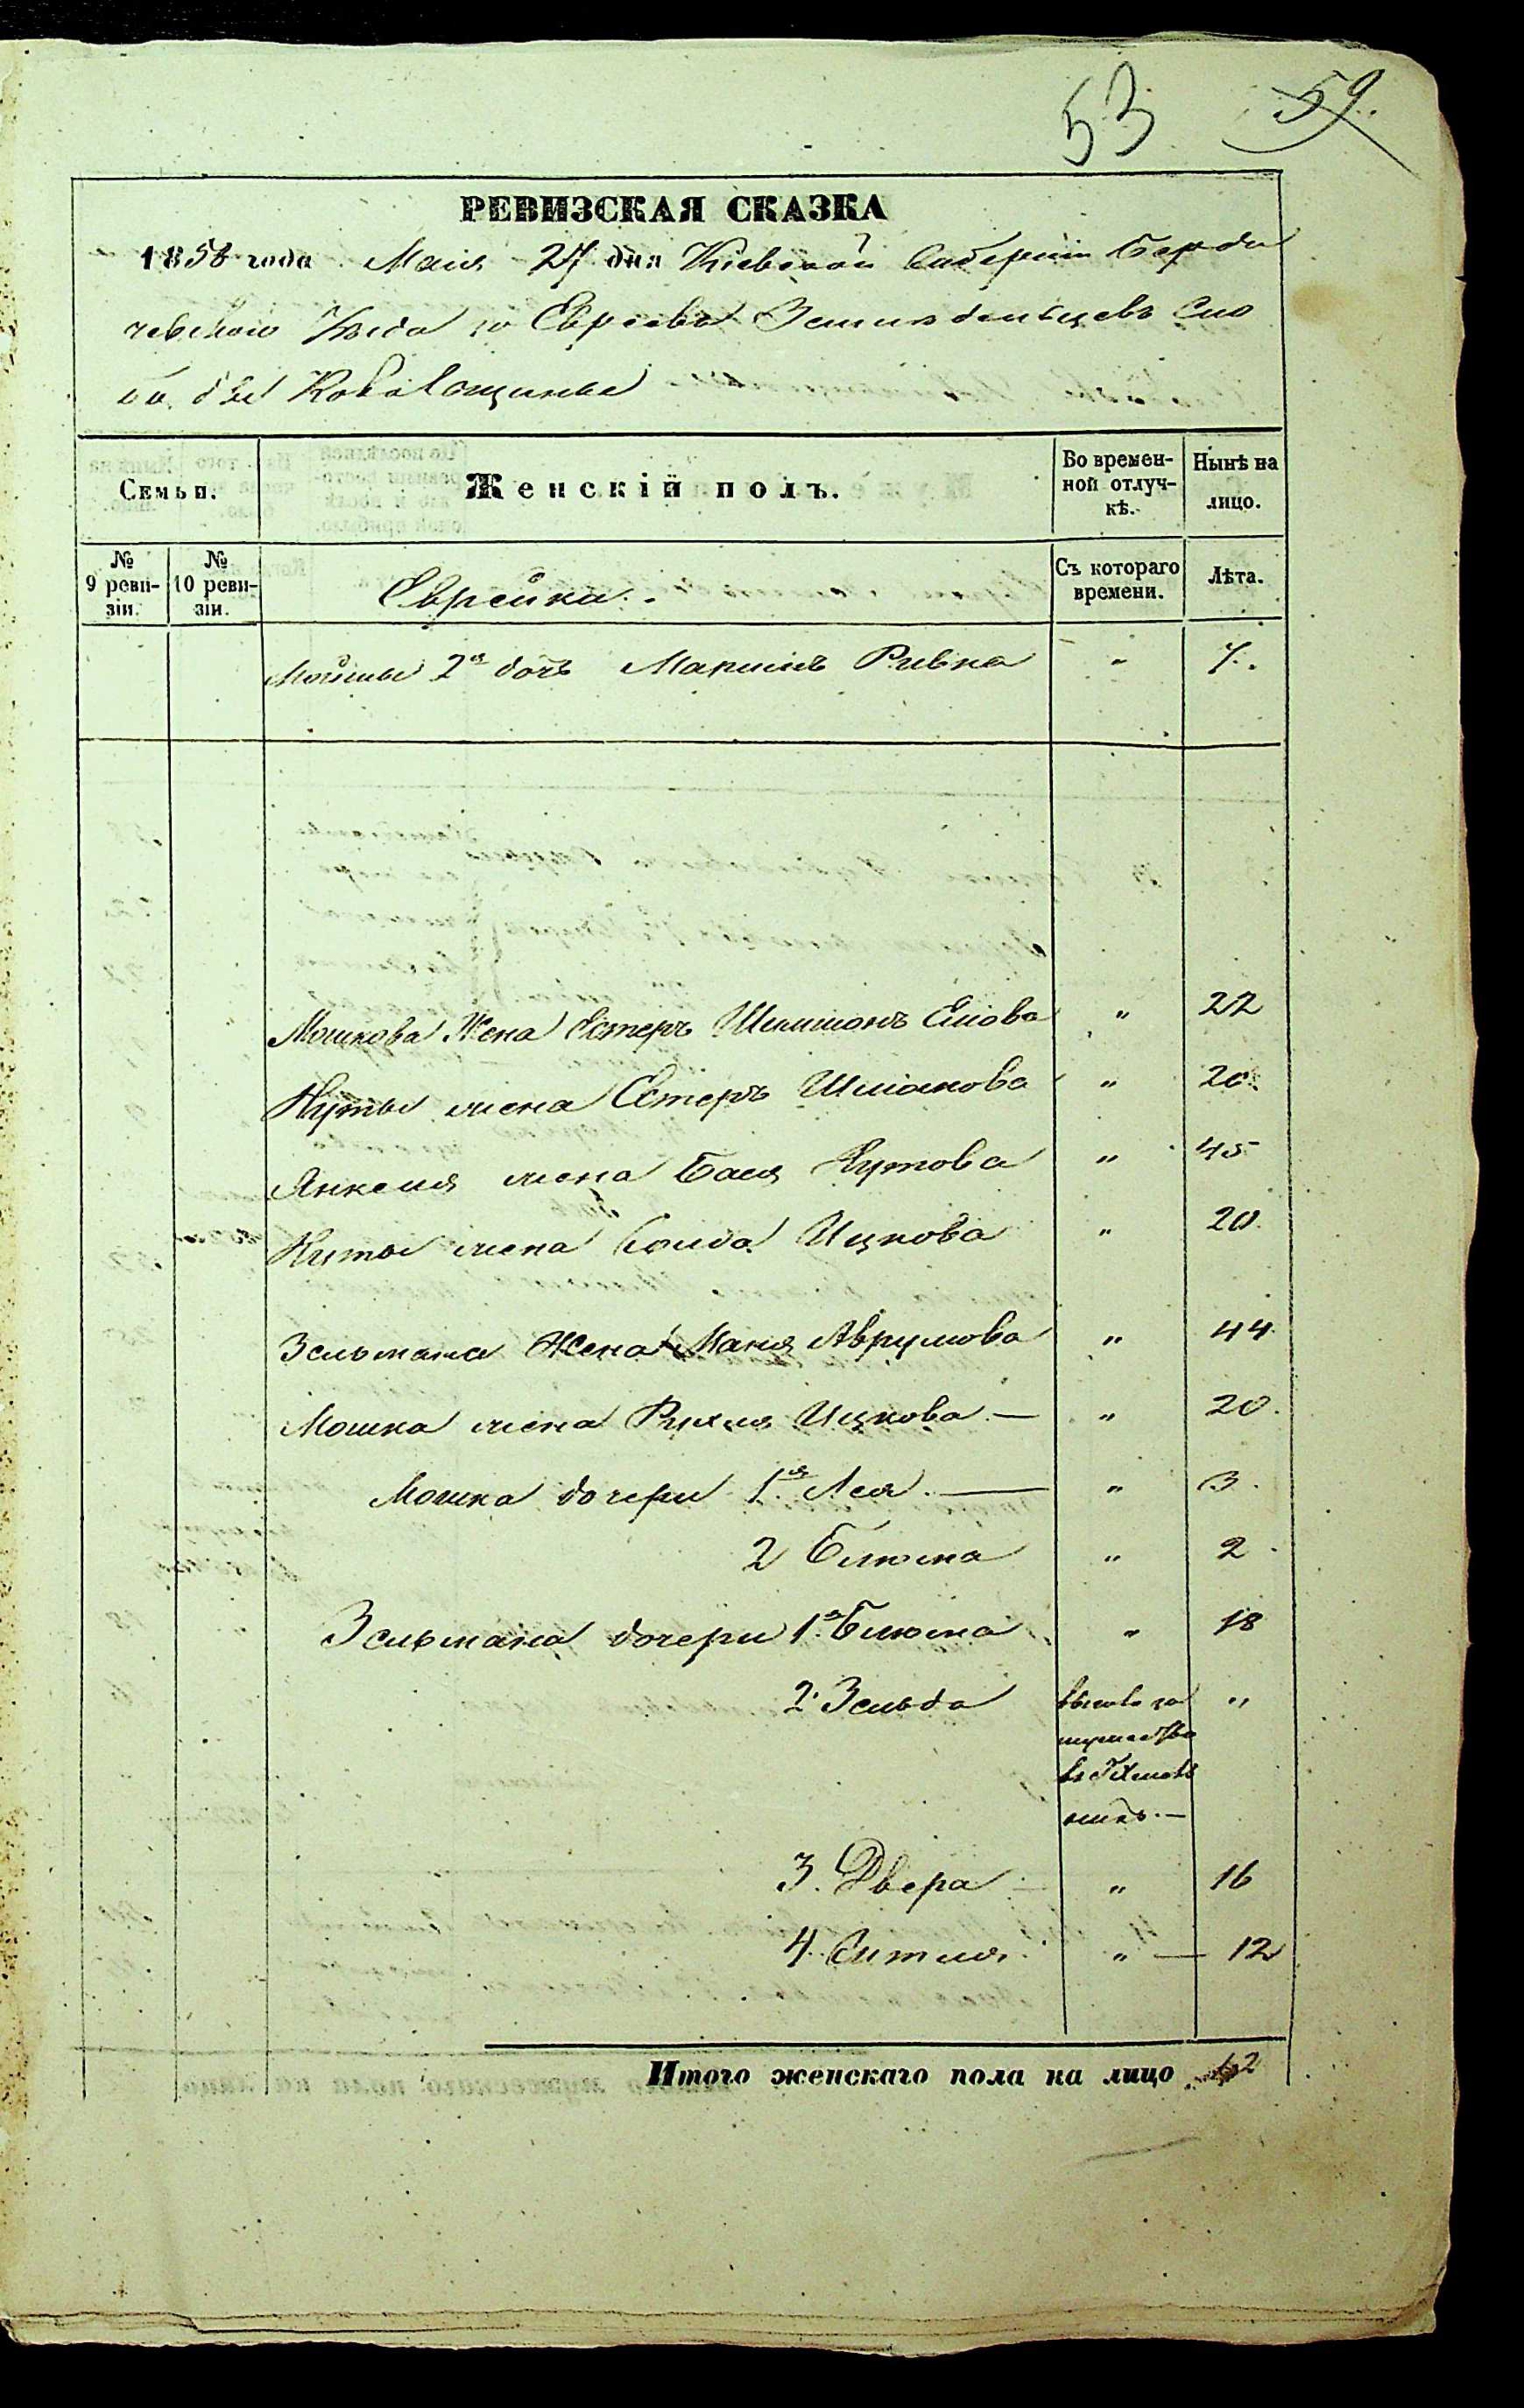 53 59.
РЕВИЗСКАЯ СКАЗКА
1858 года Маия 27 дня Кіевской Губерніи Берди
чевского Уезда о Евреевъ Земледельцевъ Сло
бо дзе
Семьи.
Женскій полъ.
Во времен-
ной отлуч-
кѣ.
Нынѣ на
лицо.
№
9 реви-
зіи.
№
10 реви-
зіи.
Еврейка.
Съ котораго
времени.
Лѣта.
Мошки 2я дочь Ривка „ 7.
Мошкова Жена Естеръ „ 22
Нуты жена Естеръ Шмаюкова „ 20.
Янкеля жена Бася Нутова „ 45
Нуты жена Ицкова „ 20.
Зельмана Жена Маня Аврумова „ 44.
Мошка жена Рухля Ицкова — „ 20.
Мошка дочери 1я Лея. — „ 3.
2 Блюма „ 2.
Зельмана дочери 1я Блюма „ 18
2. Зельда „
3. Двера „ 16
4. Ситля. „ — 12
Итого женскаго пола на лицо 12